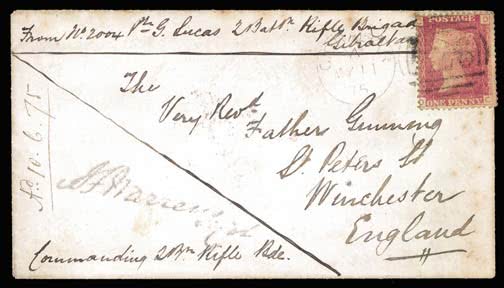 From No. 2004 Pte G. Lucas 2 Batn Rifle Brigade
Gibraltar
POSTAGE
ONE PENNY
The
Very Revd.
Fathers Gunning
St. Peters St
Winchester
England
Ad. 10. 6. 75
Commanding 2 Bn Rifle Bde.
75